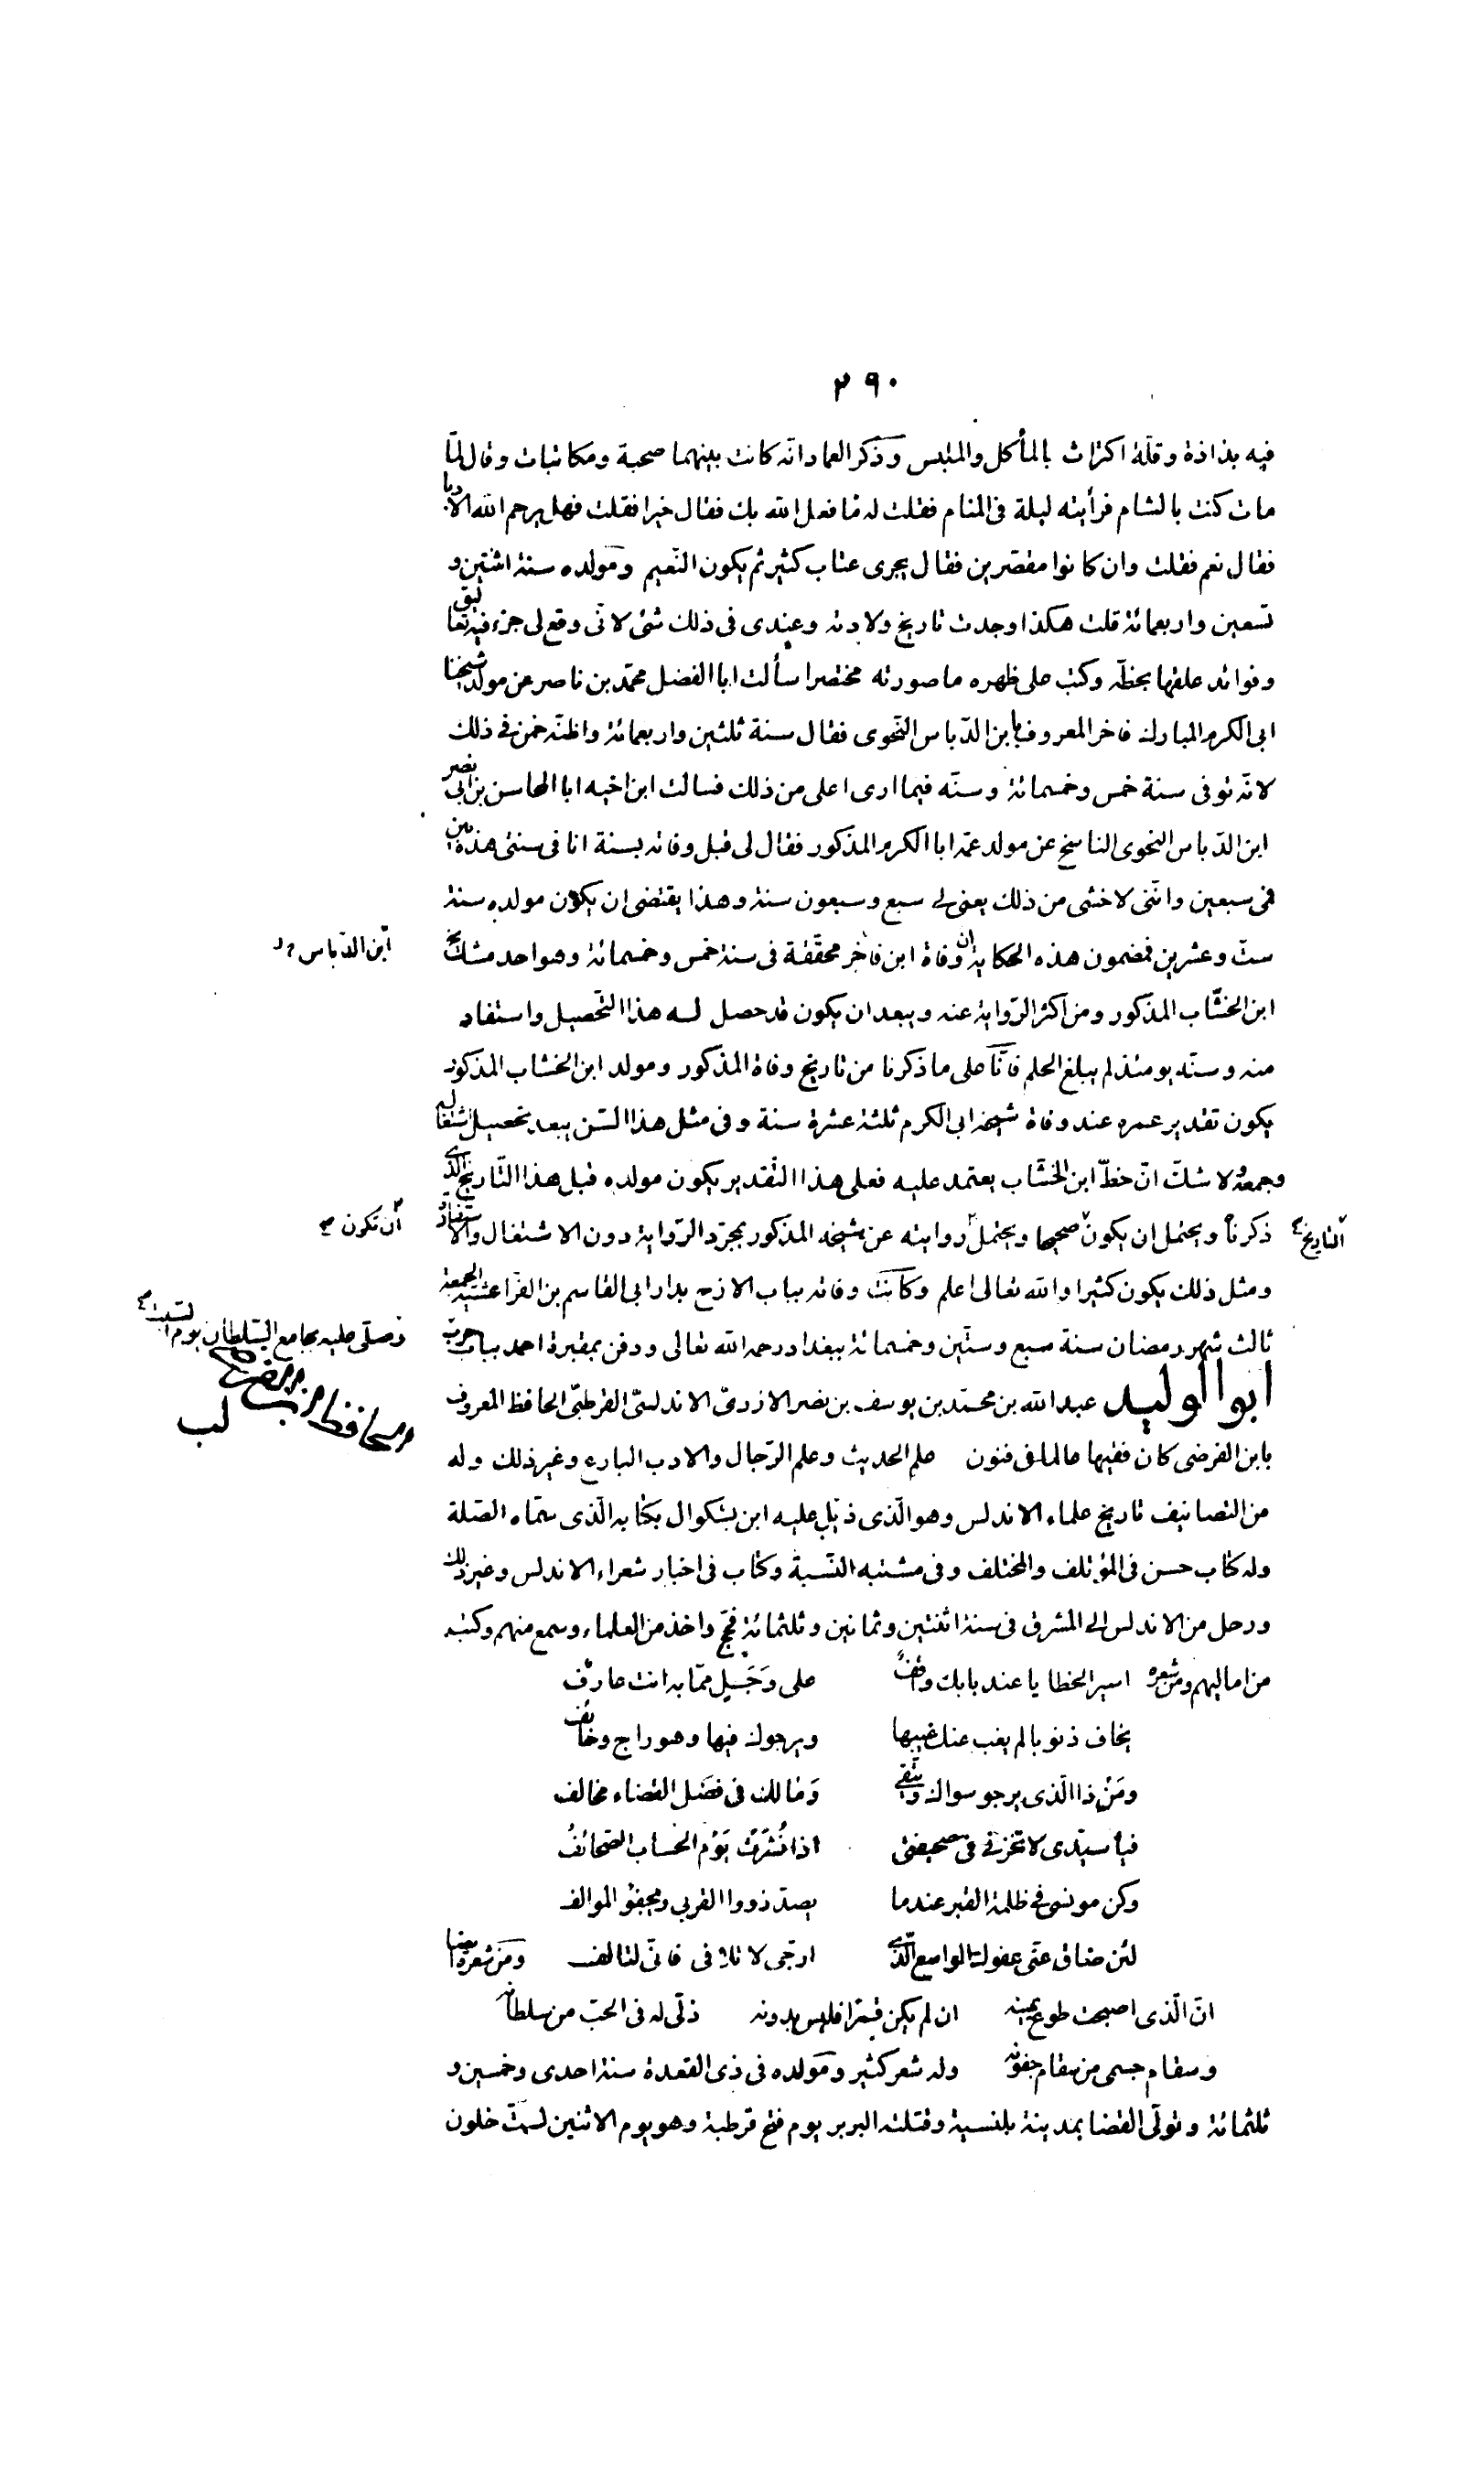 ٢٩٠
فيه بذاذة وقلّة اكتراث بالمأكل والملبس وذكر العماد انّه كانت بينهما صحبة ومكاتبات وقال لمّا
مات كنت بالشام فرأيته ليلة فى المنام فقلت له ما فعل الله بك فقال خيرا فقلت فهل يرحم الله الادبا
فقال نعم فقلت وان كانوا مقصّرين فقال يجرى عتاب كثير ثم يكون النّعيم ومولده سنة اثنتين و
تسعين واربعمائة قلت هكذا وجدت تاريخ ولادته وعندى فى ذلك شئ لانّى وقع لى جزء فيه تعاليق
وفوائد علقها بخطّه وكتب على ظهره ما صورته مختصرا سألت ابا الفضل محمّد بن ناصر عن مولد شيخنا
ابى الكرم المبارك فاخر المعروف بابن الدّباس النّحوى فقال سنة ثلثين واربعمائة واظنّه خمن فى ذلك
لانّه توفى سنة خمس وخمسمائة وسنّه فيما ارى اعلى من ذلك فسالت ابن اخيه ابا المحاسن بن ابى نصر
ابن الدّباس النحوى الناسخ عن مولد عمّه ابا الكرم المذكور فقال لى قبل وفاته بسنة انا فى سنتى هذه بين
فى سبعين وانّنى لاخشى من ذلك يعنى لى سبع وسبعون سنة وهذا يقتضى ان يكون مولده سنة
ستّ وعشرين فمضمون هذه الحكاية ان وفاة ابن فاخر محقّقة فى سنة خمس وخمسمائة وهو احد مشائخ
ابن الدّباس
ابن الخشّاب المذكور ومن اكثر الرّواية عنه ويبعد ان يكون قد حصل له هذا التّحصيل واستفاد
منه وسنّه يومئذ لم يبلغ الحلم فانّا على ما ذكرنا من تاريخ وفاة المذكور ومولد ابن الخشاب المذكور
يكون تقدير عمره عند وفاة شيخه ابى الكرم ثلثة عشرة سنة وفى مثل هذا السّن يبعد تحصيل اشتغاله
وجمعه ولا شكّ انّ خطّ ابن الخشّاب يعتمد عليه فعلى هذا التّقدير يكون مولده قبل هذا التّاريخ الّذى
التاريخ
ذكرناه ويحتمل ان يكون صحيحا ويحتمل روايته عن شيخه المذكور بمجرّد الرّواية دون الاشتغال والاستفادة
ان تكون
ومثل ذلك يكون كثيرا والله تعالى اعلم وكانت وفاته بباب الازج بدار ابى القاسم بن الفرّا عشيّة الجمعة
ثالث شهر رمضان سنة سبع وستّين وخمسمائة ببغداد رحمه الله تعالى ودفن بمقبرة احمد بباب حرب
وصلّى عليه بجامع السّلطان يوم السّبت
ابو الوليد عبد الله بن محمّد بن يوسف بن نصر الازدىّ الاندلسىّ القرطبىّ الحافظ المعروف
بابن الفرضى كان فقيها عالما فى فنون علم الحديث وعلم الرّجال والادب البارع وغير ذلك وله
من التصانيف تاريخ علماء الاندلس وهو الّذى ذيّل عليه ابن بشكوال بكتابه الّذى سمّاه الصّلة
وله كتاب حسن فى المؤتلف والمختلف وفى مشتبه النّسبة وكتاب فى اخبار شعراء الاندلس وغير ذلك
ورحل من الاندلس الى المشرق فى سنة اثنتين وثمانين وثلثمائة فحجّ واخذ من العلماء وسمع منهم وكتب
من اماليهم ومن شعره اسير الخطايا عند بابك واقف على وَجَلٍ ممّا به انت عارف
يخاف ذنوبا لم يغب عنك غيبها ويرجوك فيها وهو راج وخائف
ومَنْ ذا الّذى يرجو سواك ويتّقى وَمَا لك فى فصَل القضاء مخالف
فيا سيّدى لا تخزنى فى صحيفتى اذا نُشرَت يَوْم الحساب الصّحائفُ
وكن مونسى فى ظلمة القبر عندما يصدّ ذووا القربى ويجفو الموالف
لئن ضاق عنّى عفوك الواسع الّذى ارجّى لا تلافى فانّى لتالف ومن شعره ايضا
انّ الّذى اصبحت طوع يمينه ان لم يكن قمرا فليس بدونه ذلّى له فى الحبّ من سلطانه
وسقام جسمى من سقام جفونه وله شعر كثير ومولده فى ذى القعدة سنة احدى وخمسين و
ثلثمائة وتولّى القضا بمدينة بلنسية وقتلته البربر يوم فتح قرطبة وهو يوم الاثنين لستّ خلون